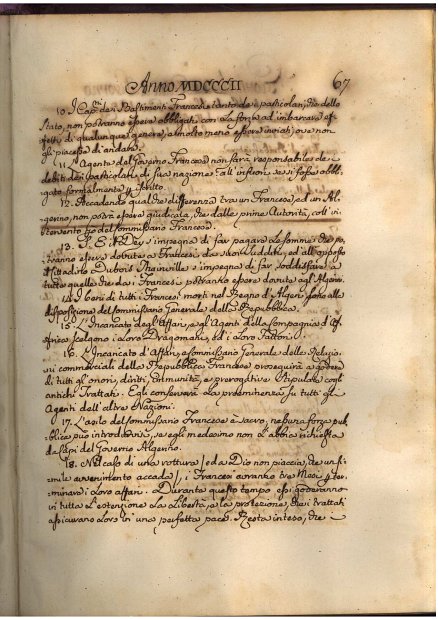 Anno MDCCCII 67
10. I Cap.ni dei Bastimenti Francesi tanto dei particolari, che dello
Stato, non potranno essere obbligati con la forza ad imbarcare ef-
fetti di qualunque genere, e molto meno essere inviati ove non
gli piacesse di andare.
11. L'Agente del Governo Francese non sarà responsabile dei
debiti dei particolari di sua nazione all'infuori se si fosse obbli-
gato formalmente p. scritto.
12. Accadendo qualche differenza tra un Francese, ed un Al-
gerino, non potrà essere giudicata, che dalle prime Autorità, coll'in-
tervento p. del Commissario Francese.
13. S. E. il Dey s'impegna di far pagare le somme che po-
tranno essere dovute a Francesi da suoi Sudditi, ed all'opposto
il Cittadino Dubois Thainville s'impegna di far soddisfare a
tutte quelle che dai Francesi potranno essere dovute agl'Algerini.
14. I beni di tutti i Francesi morti nel Regno d'Algeri sono alla
disposizione del Commissario Generale della Repubblica.
15. L'Incaricato degl'Affari, e gl'Agenti della Compagnia d'Af-
frica scelgono i loro Dragomani, ed i loro Fattori.
16. L'Incaricato d'Affari, e Commissario Generale delle Relazio-
ni commerciali della Repubblica Francese proseguirà a godere
di tutti gl'onori, diritti, immunità, e prerogative stipulate cogli
antichi Trattati. Egli conserverà la preeminenza su tutti gl'
Agenti dell'altre Nazioni.
17. L'asilo del Commissario Francese è sacro, nessuna forza pub-
blica può introdursi, se egli medesimo non l'abbia richiesta
da Capi del Governo Algerino.
18. Nel caso di una rottura / e da Dio non piaccia, che un si-
mile avvenimento accada /, i Francesi avranno tre Mesi p. ter-
minare i loro affari. Durante questo tempo essi goderanno
in tutta l'estenzione la Libertà, e la protezione, che i trattati
assicurano loro in una perfetta pace. Resta inteso, che